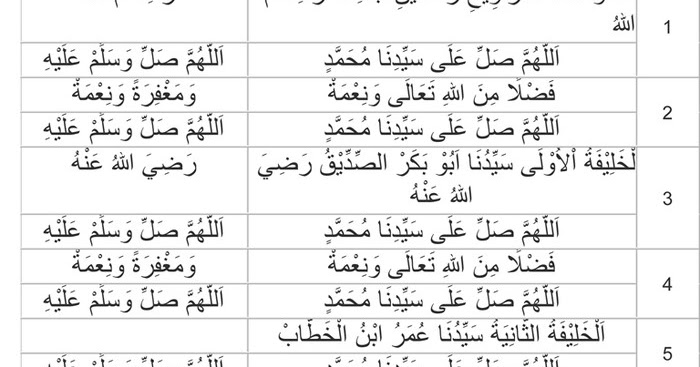 اللهُ
1
اَللّٰهُمَّ صَلِّ عَلَى سَيِّدِنَا مُحَمَّدٍ	اَللّٰهُمَّ صَلِّ وَسَلِّمْ عَلَيْهِ
2
فَضْلًا مِنَ اللهِ تَعَالَى وَنِعْمَةْ	وَمَغْفِرَةً وَنِعْمَةْ
اَللّٰهُمَّ صَلِّ عَلَى سَيِّدِنَا مُحَمَّدٍ	اَللّٰهُمَّ صَلِّ وَسَلِّمْ عَلَيْهِ
3
لْخَلِيْفَةُ اْلأُوْلَى سَيِّدُنَا اَبُوْ بَكَرْ الصِّدِّيْقُ رَضِيَ	رَضِيَ اللهُ عَنْهُ
اللهُ عَنْهُ
اَللّٰهُمَّ صَلِّ عَلَى سَيِّدِنَا مُحَمَّدٍ	اَللّٰهُمَّ صَلِّ وَسَلِّمْ عَلَيْهِ
4
فَضْلًا مِنَ اللهِ تَعَالَى وَنِعْمَةْ	وَمَغْفِرَةً وَنِعْمَةْ
اَللّٰهُمَّ صَلِّ عَلَى سَيِّدِنَا مُحَمَّدٍ	اَللّٰهُمَّ صَلِّ وَسَلِّمْ عَلَيْهِ
5
اَلْخَلِيْفَةُ الثَّانِيَةُ سَيِّدُنَا عُمَرُ ابْنُ الْخَطَّابْ
اَللّٰهُمَّ صَلِّ عَلَى سَيِّدِنَا مُحَمَّدٍ	اَللّٰهُمَّ صَلِّ وَسَلِّمْ عَلَيْهِ